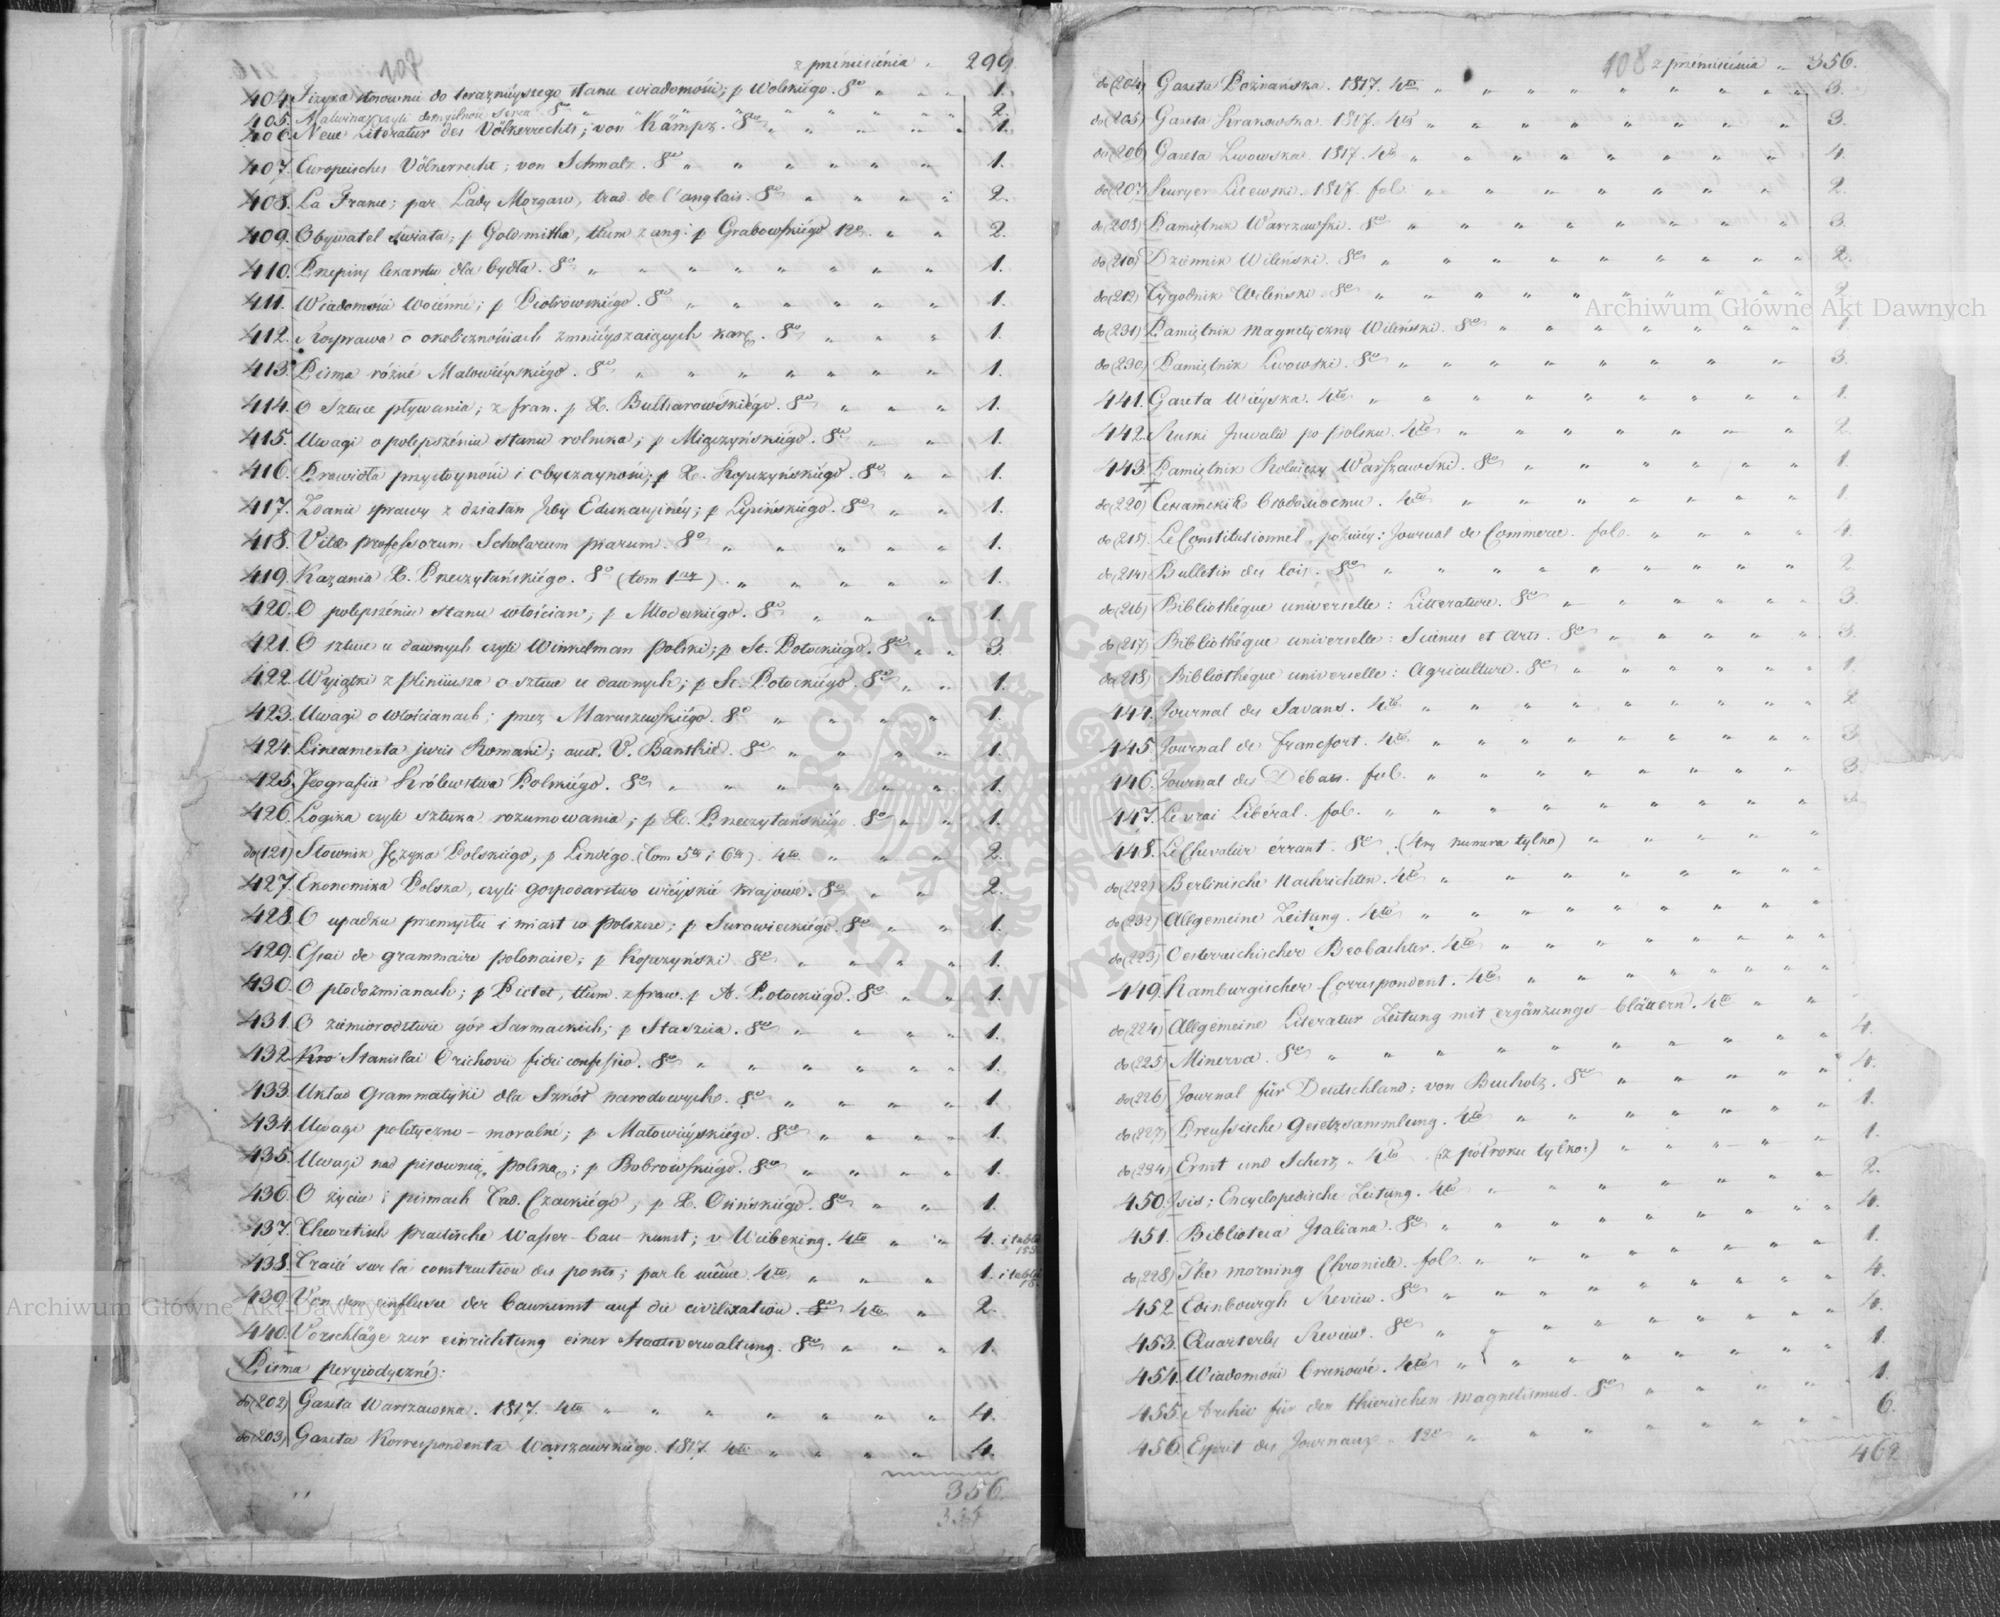 107
z przeniesienia „ 299.
404. Fizyka stosownie do teraznieyszego stanu wiadomości; p Wolskiego. 8vo 1.
405. Malwina, czyli domyślność serca 8vo 2.
406. Neue Literatur des Völkerrechts; von Kämpz. 8vo 1.
407. Europeisches Völkerrecht; von Schmalz. 8vo 1.
408. La France; par Lady Morgan, trad. de l'anglais. 8vo 2.
409. Obywatel świata; p Goldsmitha, tłum z ang: p Grabowskiego 12o 2.
410. Przepisy lekarstw dla bydła. 8vo 1.
411. Wiadomości woienne; p Piotrowskiégo. 8vo 1.
412. Rozprawa o okolicznościach zmnieyszaiących karę. 8vo 1.
413. Pisma różné Matowieyskiégo. 8vo 1.
414. O Sztuce pływania; z fran. p X. Bulharowskiégo. 8vo 1.
415. Uwagi o polepszéniu stanu rolnika; p Mięczyńskiégo. 8vo 1.
416. Prawidła przystoyności i obyczayności; p X. Kopczyńskiégo. 8vo 1.
417. Zdanie sprawy z działan Izby Edukacyinéy; p Lipińskiégo. 8vo 1.
418. Vitæ professorum Scholarum piarum. 8o 1.
419. Kazania X. Przeczytańskiégo. 8o (tom 1szy) 1.
420. O polepszéniu stanu włościan; p Młockiégo. 8o 1.
421. O sztuce u dawnych czyli Winkelman Polski; p St. Potockiégo. 8vo 3.
422. Wyiątki z Pliniusza o sztuce u dawnych; p St. Potockiégo. 8vo 1.
423. Uwagi o włościanach; przez Maruszewskiégo. 8o 1.
424. Lineamenta juris Romani; auct. V. Bantkie. 8vo 1.
425. Jeografia Królewstwa Polskiégo. 8o 1.
426. Logika czyli sztuka rozumowania; p X. Przeczytańskiégo 8o 1.
do (121) Słownik Języka Polskiégo, p Lindégo. (tom 5ty i 6ty). 4to 2.
427. Ekonomika Polska, czyli gospodarstwo wieyskié kraiowé. 8o 2.
428. O upadku przemysłu i miast w Polszcze; p Surowieckiégo 8vo 1.
429. Essai de grammaire polonaise; p Kopczyński 8o 1.
430. O płodozmianach; p Pictet, tłum. z franc. p A. Potockiégo. 8o 1.
431. O ziemiorodztwie gór Sarmackich; p Staszica. 8vo 1.
432. Stanislai Orichovii fidei confessio. 8o 1.
433. Układ Grammatyki dla Szkół narodowych. 8vo 1.
434. Uwagi polityczno-moralné; p Matowieyskiégo. 8vo 1.
435. Uwagi nad pisownią Polską; p Bobrowskiégo. 8vo 1.
436. O życiu i pismach Tad. Czackiégo; p X. Osińskiégo. 8vo 1.
437. Theoretisch practische Wasser-bau-kunst; v Wiebeking. 4to 4. i tablic
438. Traité sur la construction des ponts; par le même 4to 1. i tablic
439. Von dem einflusse der baukunst auf die civilization. 8o 4to 2.
440. Vorschläge zur einrichtung einer Staatsverwaltung. 8vo 1.
Pisma peryiodyczné:
do (202) Gazéta Warszawska. 1817. 4to 4.
do (203) Gazéta Korrespondenta Warszawskiégo. 1817 4to 4.
356.
108 z przeniesienia „ 356.
do (204) Gazeta Poznańska. 1817. 4to 3.
do (205) Gazeta Krakowska. 1817. 4to 3.
do (206) Gazeta Lwowska. 1817. 4to 4.
do (207) Kuryer Litewski. 1817. fol. 2.
do (208) Pamiętnik Warszawski. 8vo 3.
do (210) Dziennik Wileński. 8o 2.
do (212) Tygodnik Wileński 8o 2.
do (231) Pamiętnik magnetyczny Wileński. 8vo 1.
do (230) Pamiętnik Lwowski. 8vo 3.
441. Gazeta Wieyska. 4to 1.
442. Ruski Inwalid po polsku. 4to 2.
443. Pamiętnik Rolniczy Warszawski. 8o 1.
do (220) 4to 1.
do (215) Le Constitutionnel, późniey: Journal de Commerce. fol. 4.
do (214) Bulletin des lois. 8vo 2.
do (216) Bibliothéque universelle: Litterature. 8vo 3.
do (217) Bibliothéque universelle: Sciences et arts. 8o 3.
do (218) Bibliothéque universelle: Agriculture. 8vo 1.
444. Journal des Savans. 4to 2
445. Journal de Francfort. 4to 3
446. Journal des Débats. fol. 3.
447. Le vrai Libéral. fol. 3.
448. Le Chevalier érrant. 8o (4ry numera tylko)
do (222) Berlinische Nachrichten. 4to
do (232) Allgemeine Zeitung. 4to
do (223) Oesterreichischer Beobachter. 4to
449. Hamburgischer Correspondent. 4to
do (224) Allgemeine Literatur Zeitung mit ergänzungs-blättern. 4to
do (225) Minerva. 8o 4.
do (226) Journal für Deutschland; von Bucholz. 8vo 4.
do (227) Preussische Gesetzsammlung. 4to 1.
do (234) Ernst und Scherz. 4to (z półroku tylko:) 1.
450. Isis; Encyclopedische Zeitung. 4to 2.
451. Biblioteca Italiana. 8vo 4.
do (228) The morning Chronicle. fol. 1.
452. Edinbourgh Review. 8o 4.
453. Quarterly Review. 8o 4.
454. Wiadomości brukowé. 4to 1.
455. Archiv für den thierischen magnetismus. 8o 1.
456. Esprit des Journaux 12o 6.
462
Archiwum Główne Akt Dawnych
Archiwum Główne Akt Dawnych
ARCHIWUM GŁÓWNE AKT DAWNYCH